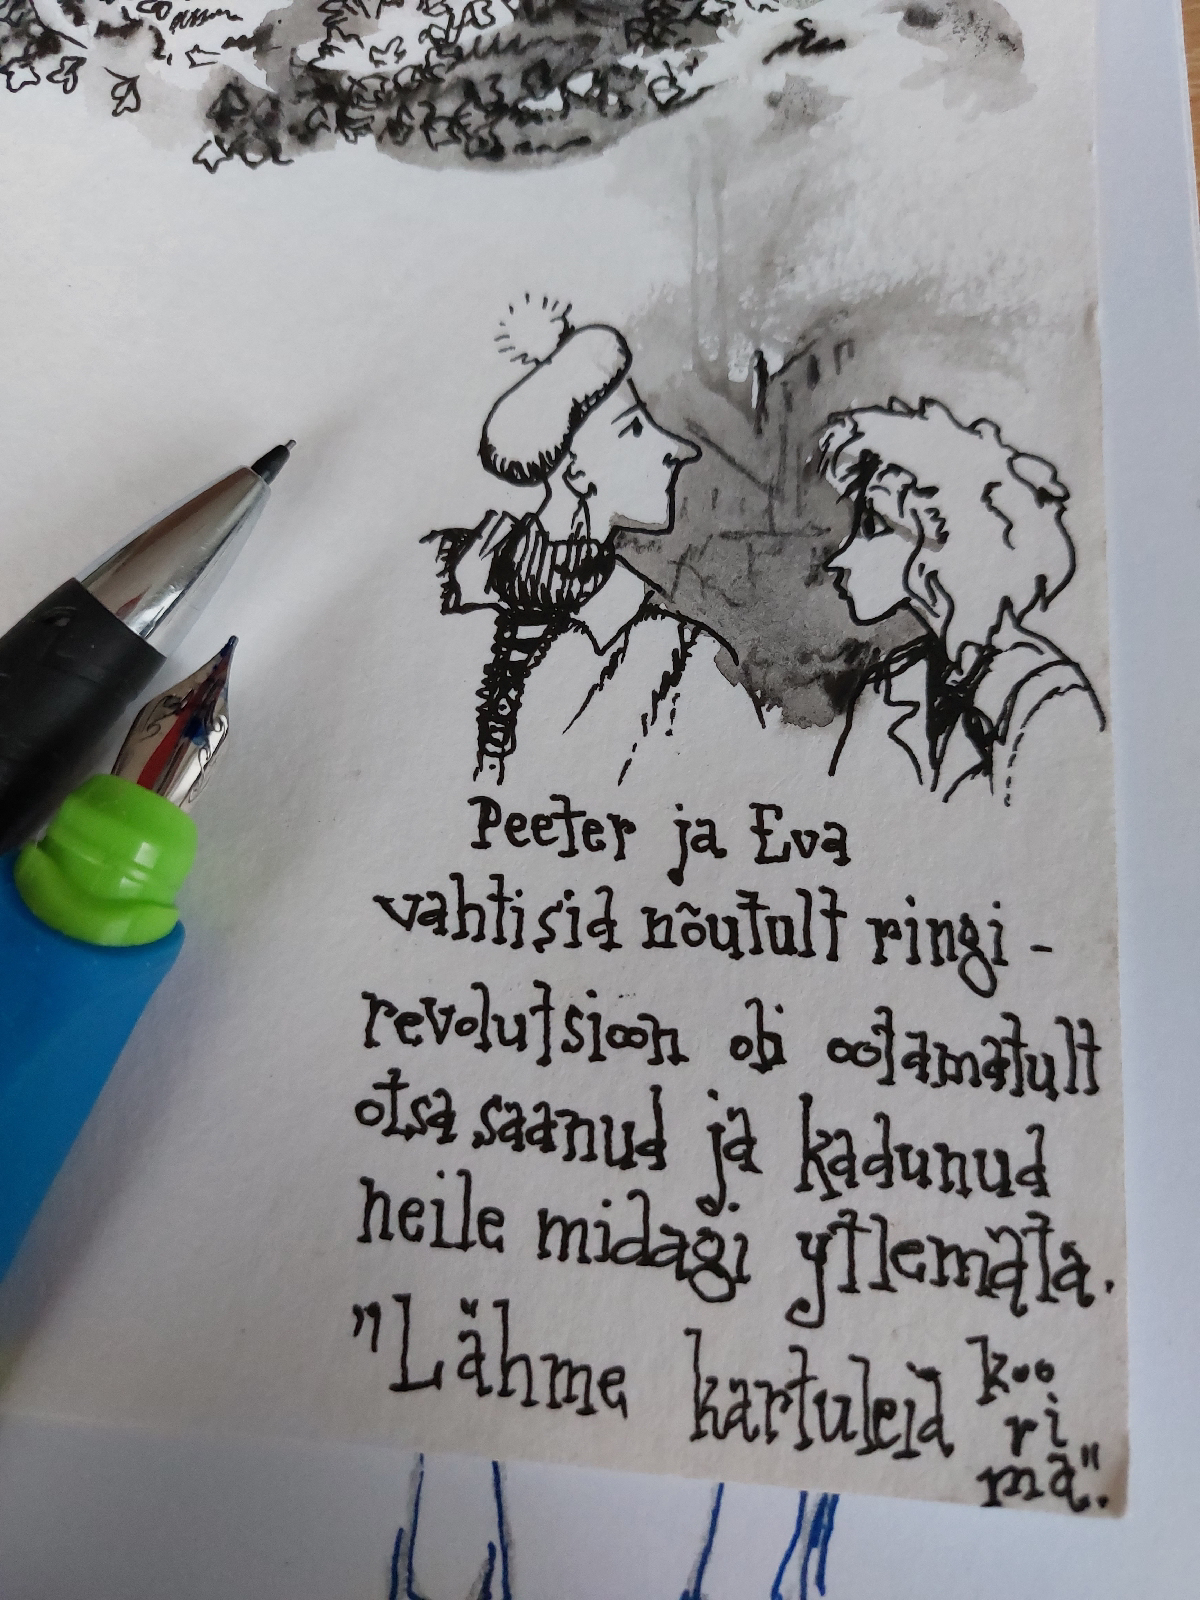 Peeter ja Eva
vahtisid nõutult ringi -
revolutsioon oli ootamatult
otsa saanud ja kadunud
neile midagi ytlemata.
"Lähme kartuleid koo
ri
ma".